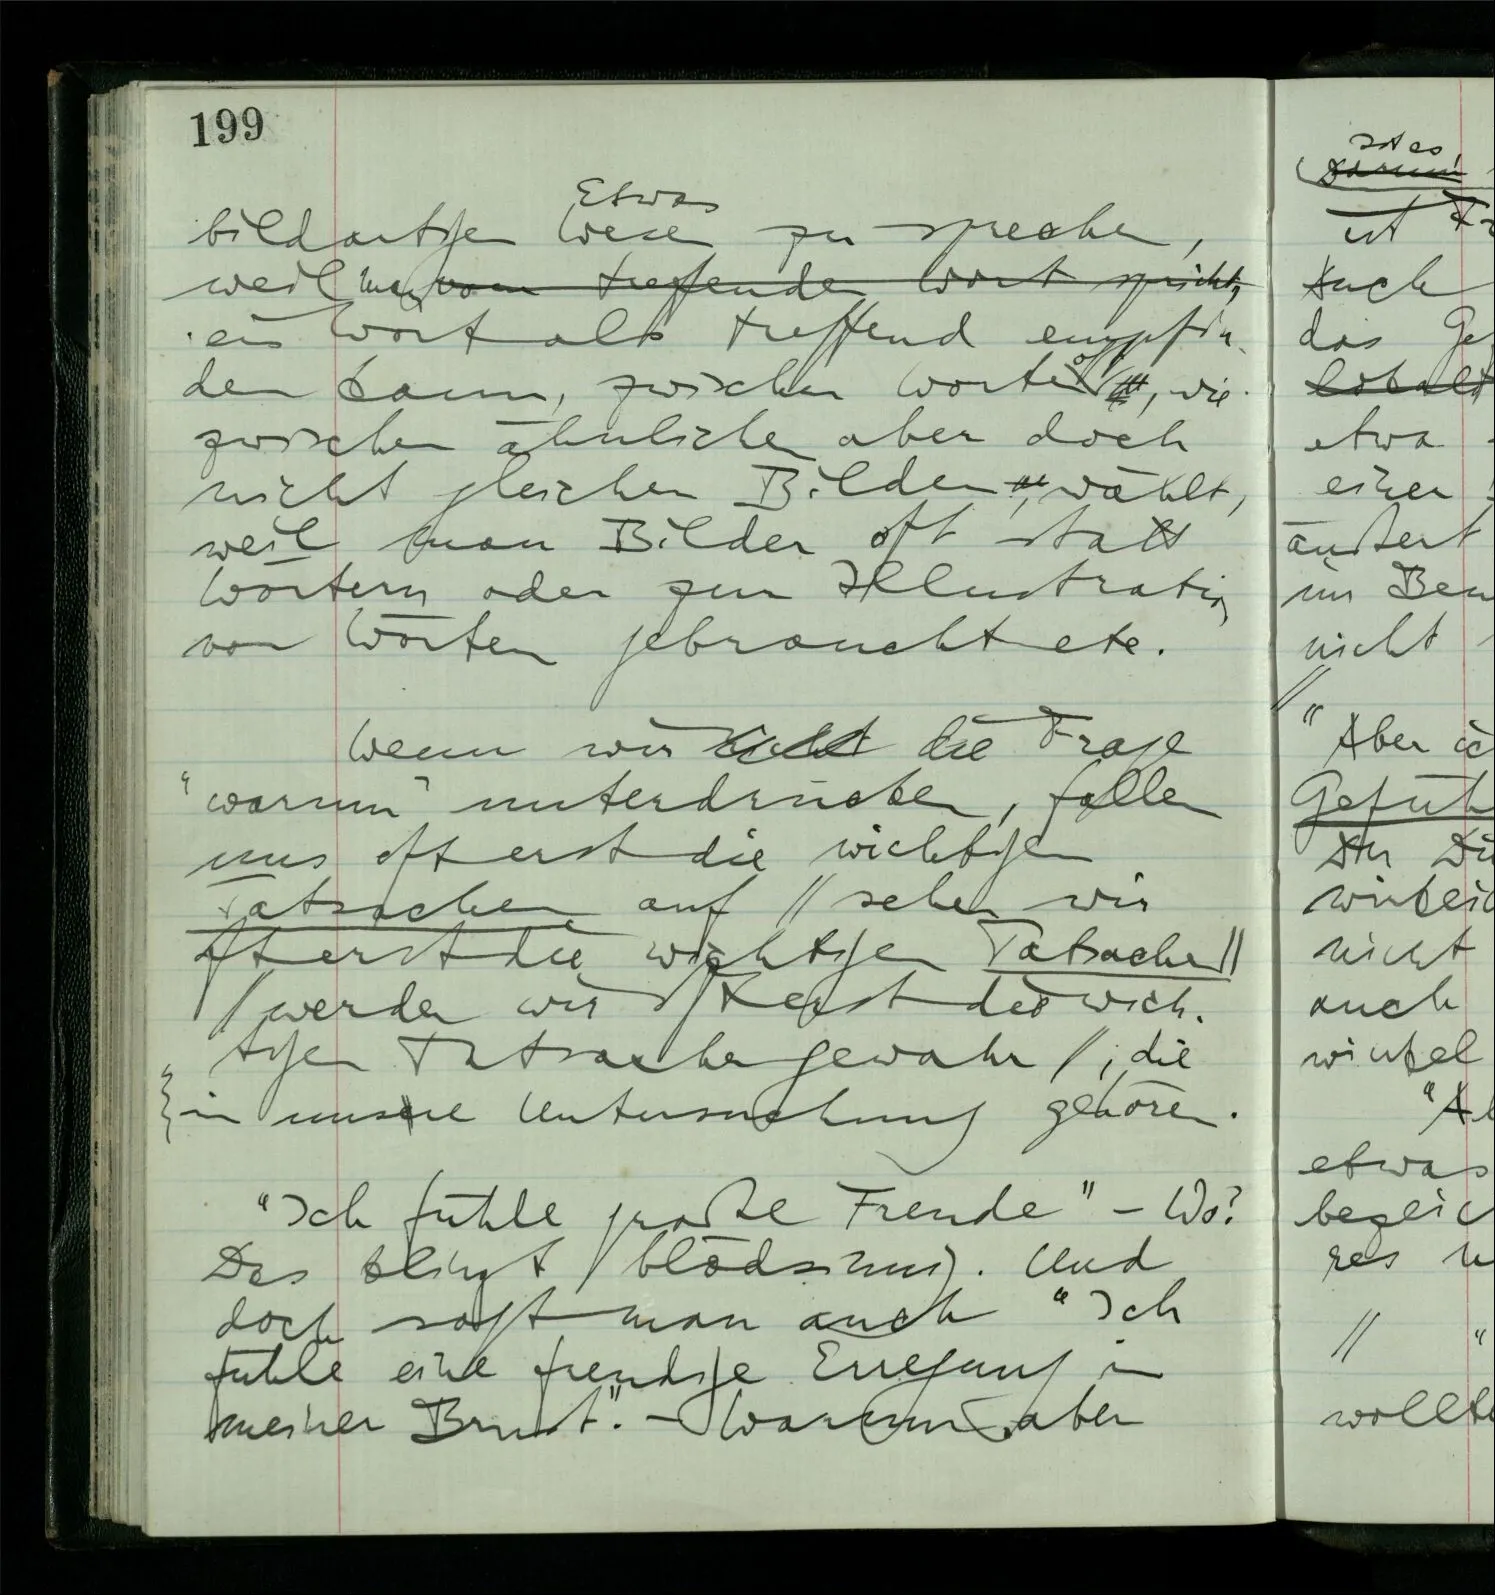 199
Etwas
bildartigen Wesen zu sprechen,
weil man vom treffenden Wort spricht,
ein Wort als treffend empfin-
den kann, zwischen Worten oft, wie
zwischen ähnlichen aber doch
nicht gleichen Bildern, wählt,
weil man Bilder oft statt
Wörtern oder zur Illustration
von Wörten gebraucht etc.
Wenn wir nicht die Frage
"warum" unterdrücken, fallen
uns oft erst die wichtigen
Tatsachen auf // sehen wir
oft erst die wichtigen Tatsachen //
// werden wir oft erst die wich-
tigen Tatsachen gewahr //, die
in unsere Untersuchung gehören.
"Ich fühle große Freude" – Wo?
Das klingt blödsinnig. Und
doch sagt man auch "Ich
fühle eine freudige Erregung in
meiner Brust". – Warum aber
ist es,
Darum
ist
Auch
das
etwa
einer
äußert
im
nicht
//
"Aber ich
Gefüh
Der
nicht
auch
winkel
etwas
res
// "
wollte